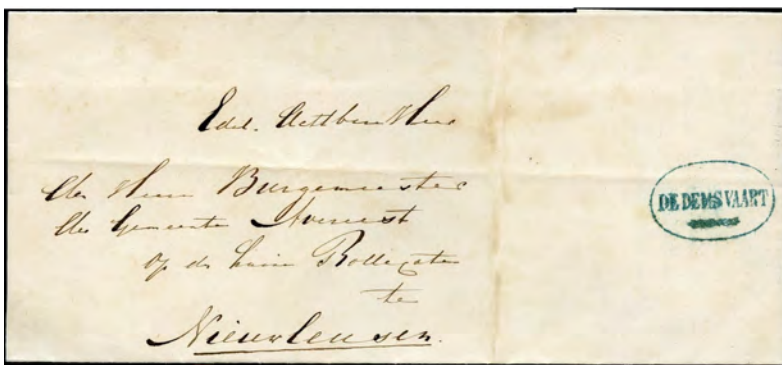 Edel. Achtbare Heer
den Heer Burgemeester
der Gemeente Avereest
op de
te
Nieuwleusen.
DEDEMSVAART